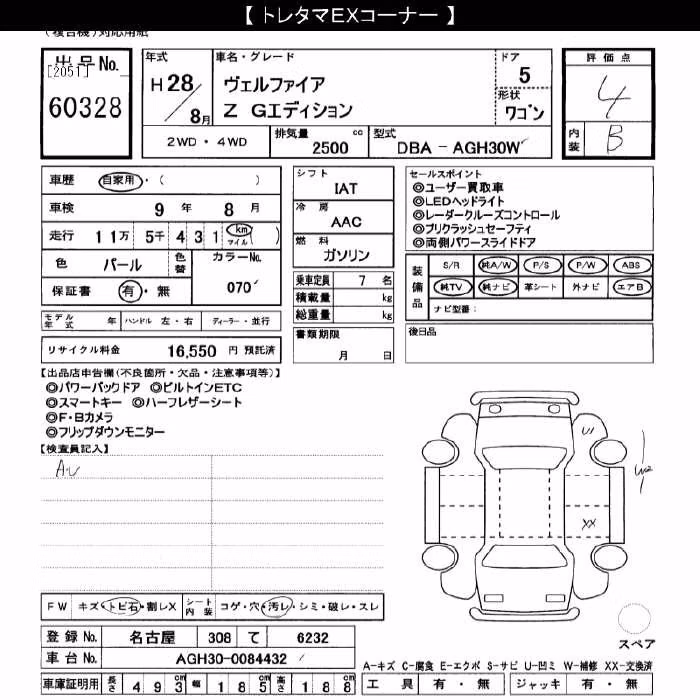 【 トレタマEXコーナー 】
(複合機)対応用紙
出品No. [2051] 60328
年式 H28/8月
車名・グレード ヴェルファイア Z Gエディション
ドア 5
形状 ワゴン
評価点 4
内装 B
2WD・4WD
排気量 2500 cc
型式 DBA - AGH30W
車歴 自家用・( )
車検 9 年 8 月
走行 11万 5千 4 3 1 km マイル ( )
色 パール 色替
カラーNo. 070
保証書 有・無
モデル年式 年 ハンドル 左・右 ディーラー・並行
リサイクル料金 16,550 円 預託済
シフト IAT
冷房 AAC
燃料 ガソリン
乗車定員 7 名
積載量 kg
総重量 kg
書類期限 月 日
セールスポイント
◎ユーザー買取車
◎LEDヘッドライト
◎レーダークルーズコントロール
◎プリクラッシュセーフティ
◎両側パワースライドドア
装備品
S/R 純A/W P/S P/W ABS
純TV 純ナビ 革シート 外ナビ エアB
ナビ型番:
後日品
【出品店申告欄(不良箇所・欠品・注意事項等)】
◎パワーバックドア ◎ビルトインETC
◎スマートキー ◎ハーフレザーシート
◎F・Bカメラ
◎フリップダウンモニター
【検査員記入】
AU
U1
W2
XX
FW キズ・トビ石・割レX
シート内装 コゲ・穴・汚レ・シミ・破レ・スレ
登録No. 名古屋 308 て 6232
車台No. AGH30-0084432
車庫証明用 長さ 493cm 幅 185cm 高さ 188cm
スペア
A-キズ C-腐食 E-エクボ S-サビ U-凹ミ W-補修 XX-交換済
工具 有・無 ジャッキ 有・無